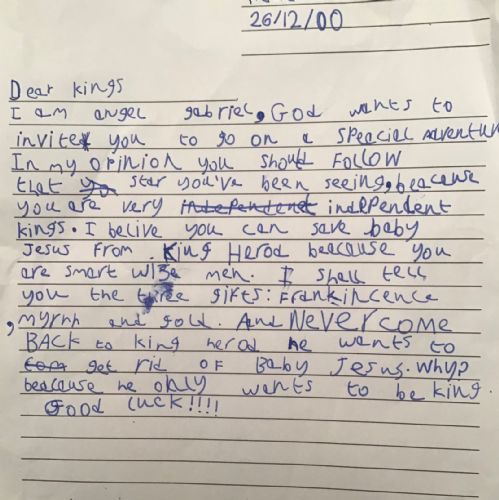 26/12/00
Dear kings
I am angel gabriel, God wants to
invite you to go on a speacial adventur
In my opinion you should Follow
that star you've been seeing, beacause
you are very independent
kings. I belive you can save baby
Jesus from King Herod beacause you
are smart wise men. I shall tell
you the three gifts: Frankincence
, myrhh and gold. And NEVER COME
BACK to king herod he wants to
get rid of Baby Jesus. Why?
beacause he only wants to be king.
Good luck!!!!